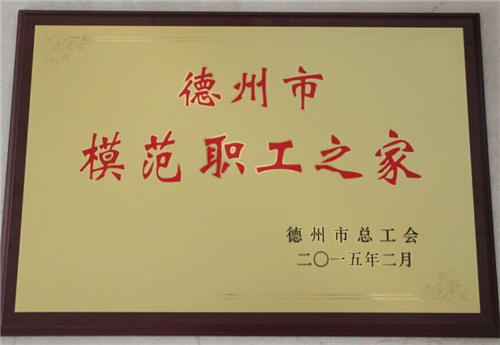 德州市
模范职工之家
德州市总工会
二〇一五年二月